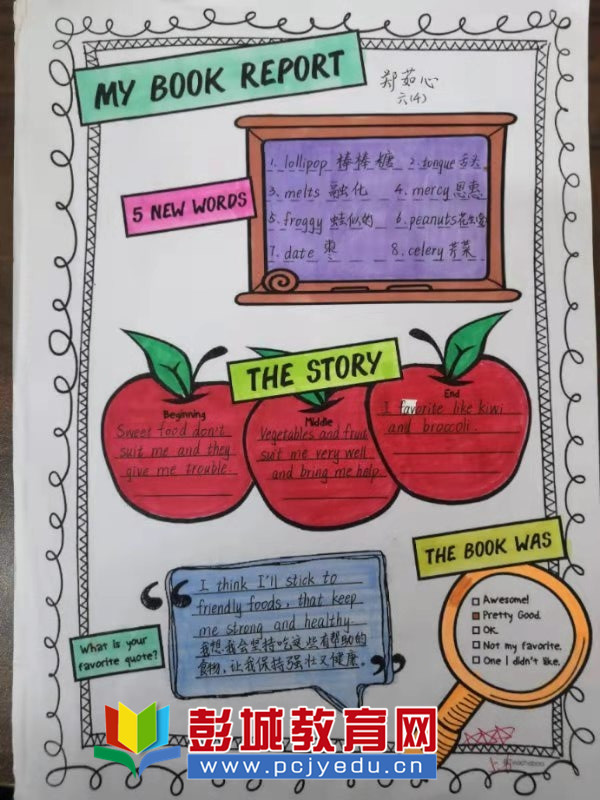 MY BOOK REPORT
郑茹心
六(4)
5 NEW WORDS
1. lollipop 棒棒糖 2. tongue 舌头
3. melts 融化 4. mercy 恩惠
5. froggy 蛙似的 6. peanuts花生
7. date 枣 8. celery 芹菜
THE STORY
Beginning
Sweet food don't
suit me and they
give me trouble.
Middle
Vegetables and fruit
suit me very well
and bring me help
End
I favorite like kiwi
and broccoli.
What is your
favorite quote?
I think I'll stick to
friendly foods, that keep
me strong and healthy
我想我会坚持吃这些有帮助的
食物,让我保持强壮又健康.
THE BOOK WAS
Awesome!
Pretty Good.
OK.
Not my favorite.
One I didn't like.
彭城教育网
www.pcjyedu.cn